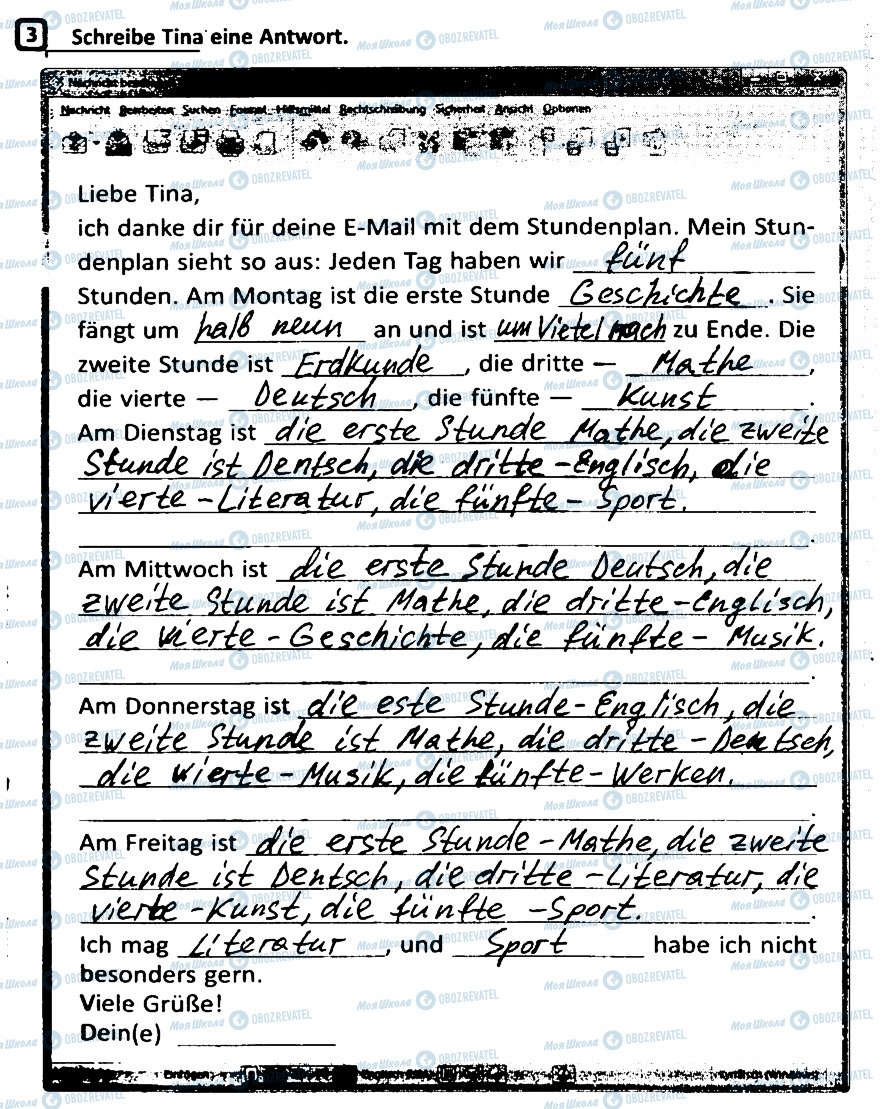 3 Schreibe Tina eine Antwort.
Nachricht Bearbeiten Suchen Format Hilfsmittel Rechtschreibung Sicherheit Ansicht Optionen
Liebe Tina,
ich danke dir für deine E-Mail mit dem Stundenplan. Mein Stun-
denplan sieht so aus: Jeden Tag haben wir fünf
Stunden. Am Montag ist die erste Stunde Geschichte. Sie
fängt um halb neun an und ist um Vietel nach zu Ende. Die
zweite Stunde ist Erdkunde, die dritte — Mathe,
die vierte — Deutsch, die fünfte — Kunst.
Am Dienstag ist die erste Stunde Mathe, die zweite
Stunde ist Dentsch, die dritte - Englisch, die
vierte - Literatur, die fünfte - Sport.
Am Mittwoch ist die erste Stunde Deutsch, die
zweite Stunde ist Mathe, die dritte - Englisch,
die vierte - Geschichte, die fünfte - Musik.
Am Donnerstag ist die este Stunde - Englisch, die
zweite Stunde ist Mathe, die dritte - Deutsch,
die vierte - Musik, die fünfte - Werken.
Am Freitag ist die erste Stunde - Mathe, die zweite
Stunde ist Dentsch, die dritte - Literatur, die
vierte - Kunst, die fünfte - Sport.
Ich mag Literatur, und Sport habe ich nicht
besonders gern.
Viele Grüße!
Dein(e)
Моя Школа OBOZREVATEL